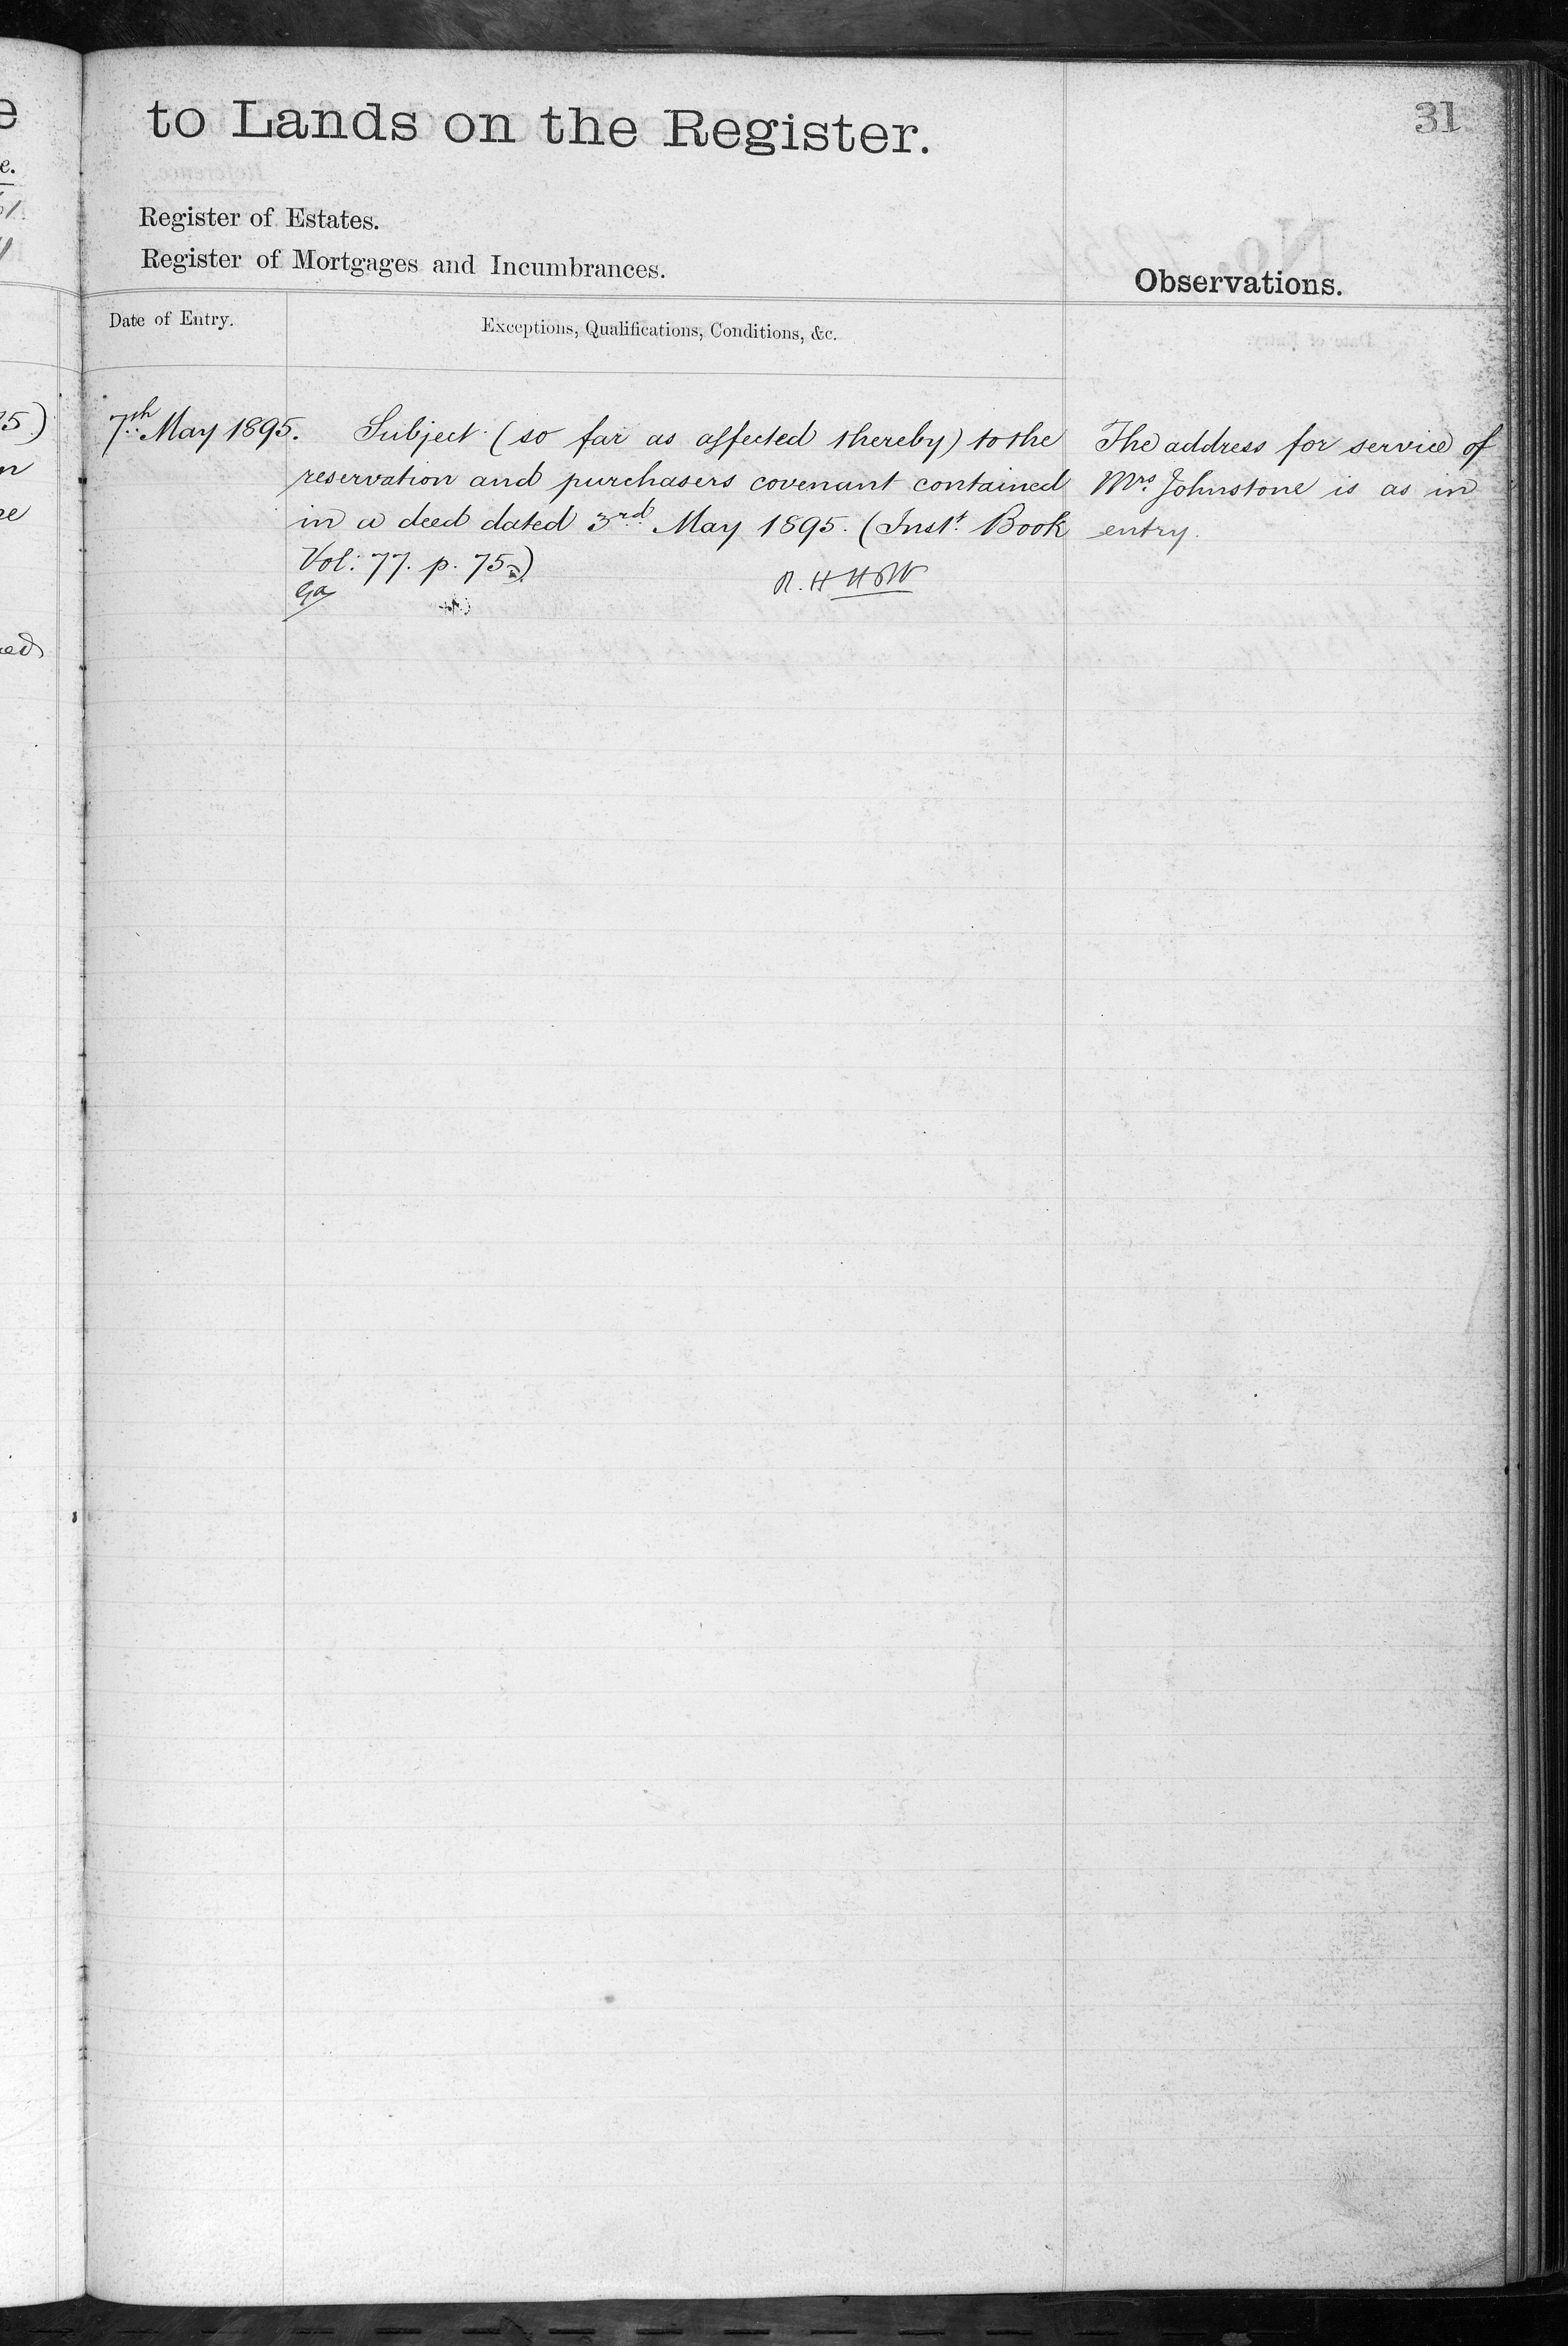 31
to Lands on the Register.
Register of Estates.
Register of Mortgages and Incumbrances.
Observations.
Date of Entry.
Exceptions, Qualifications, Conditions, &c.
7th May 1895.
Subject (so far as affected thereby) to the
reservation and purchasers covenant contained
in a deed dated 3rd May 1895. (Inst. Book
Vol: 77. p. 75)
The address for service of
Mrs Johnstone is as in
entry.